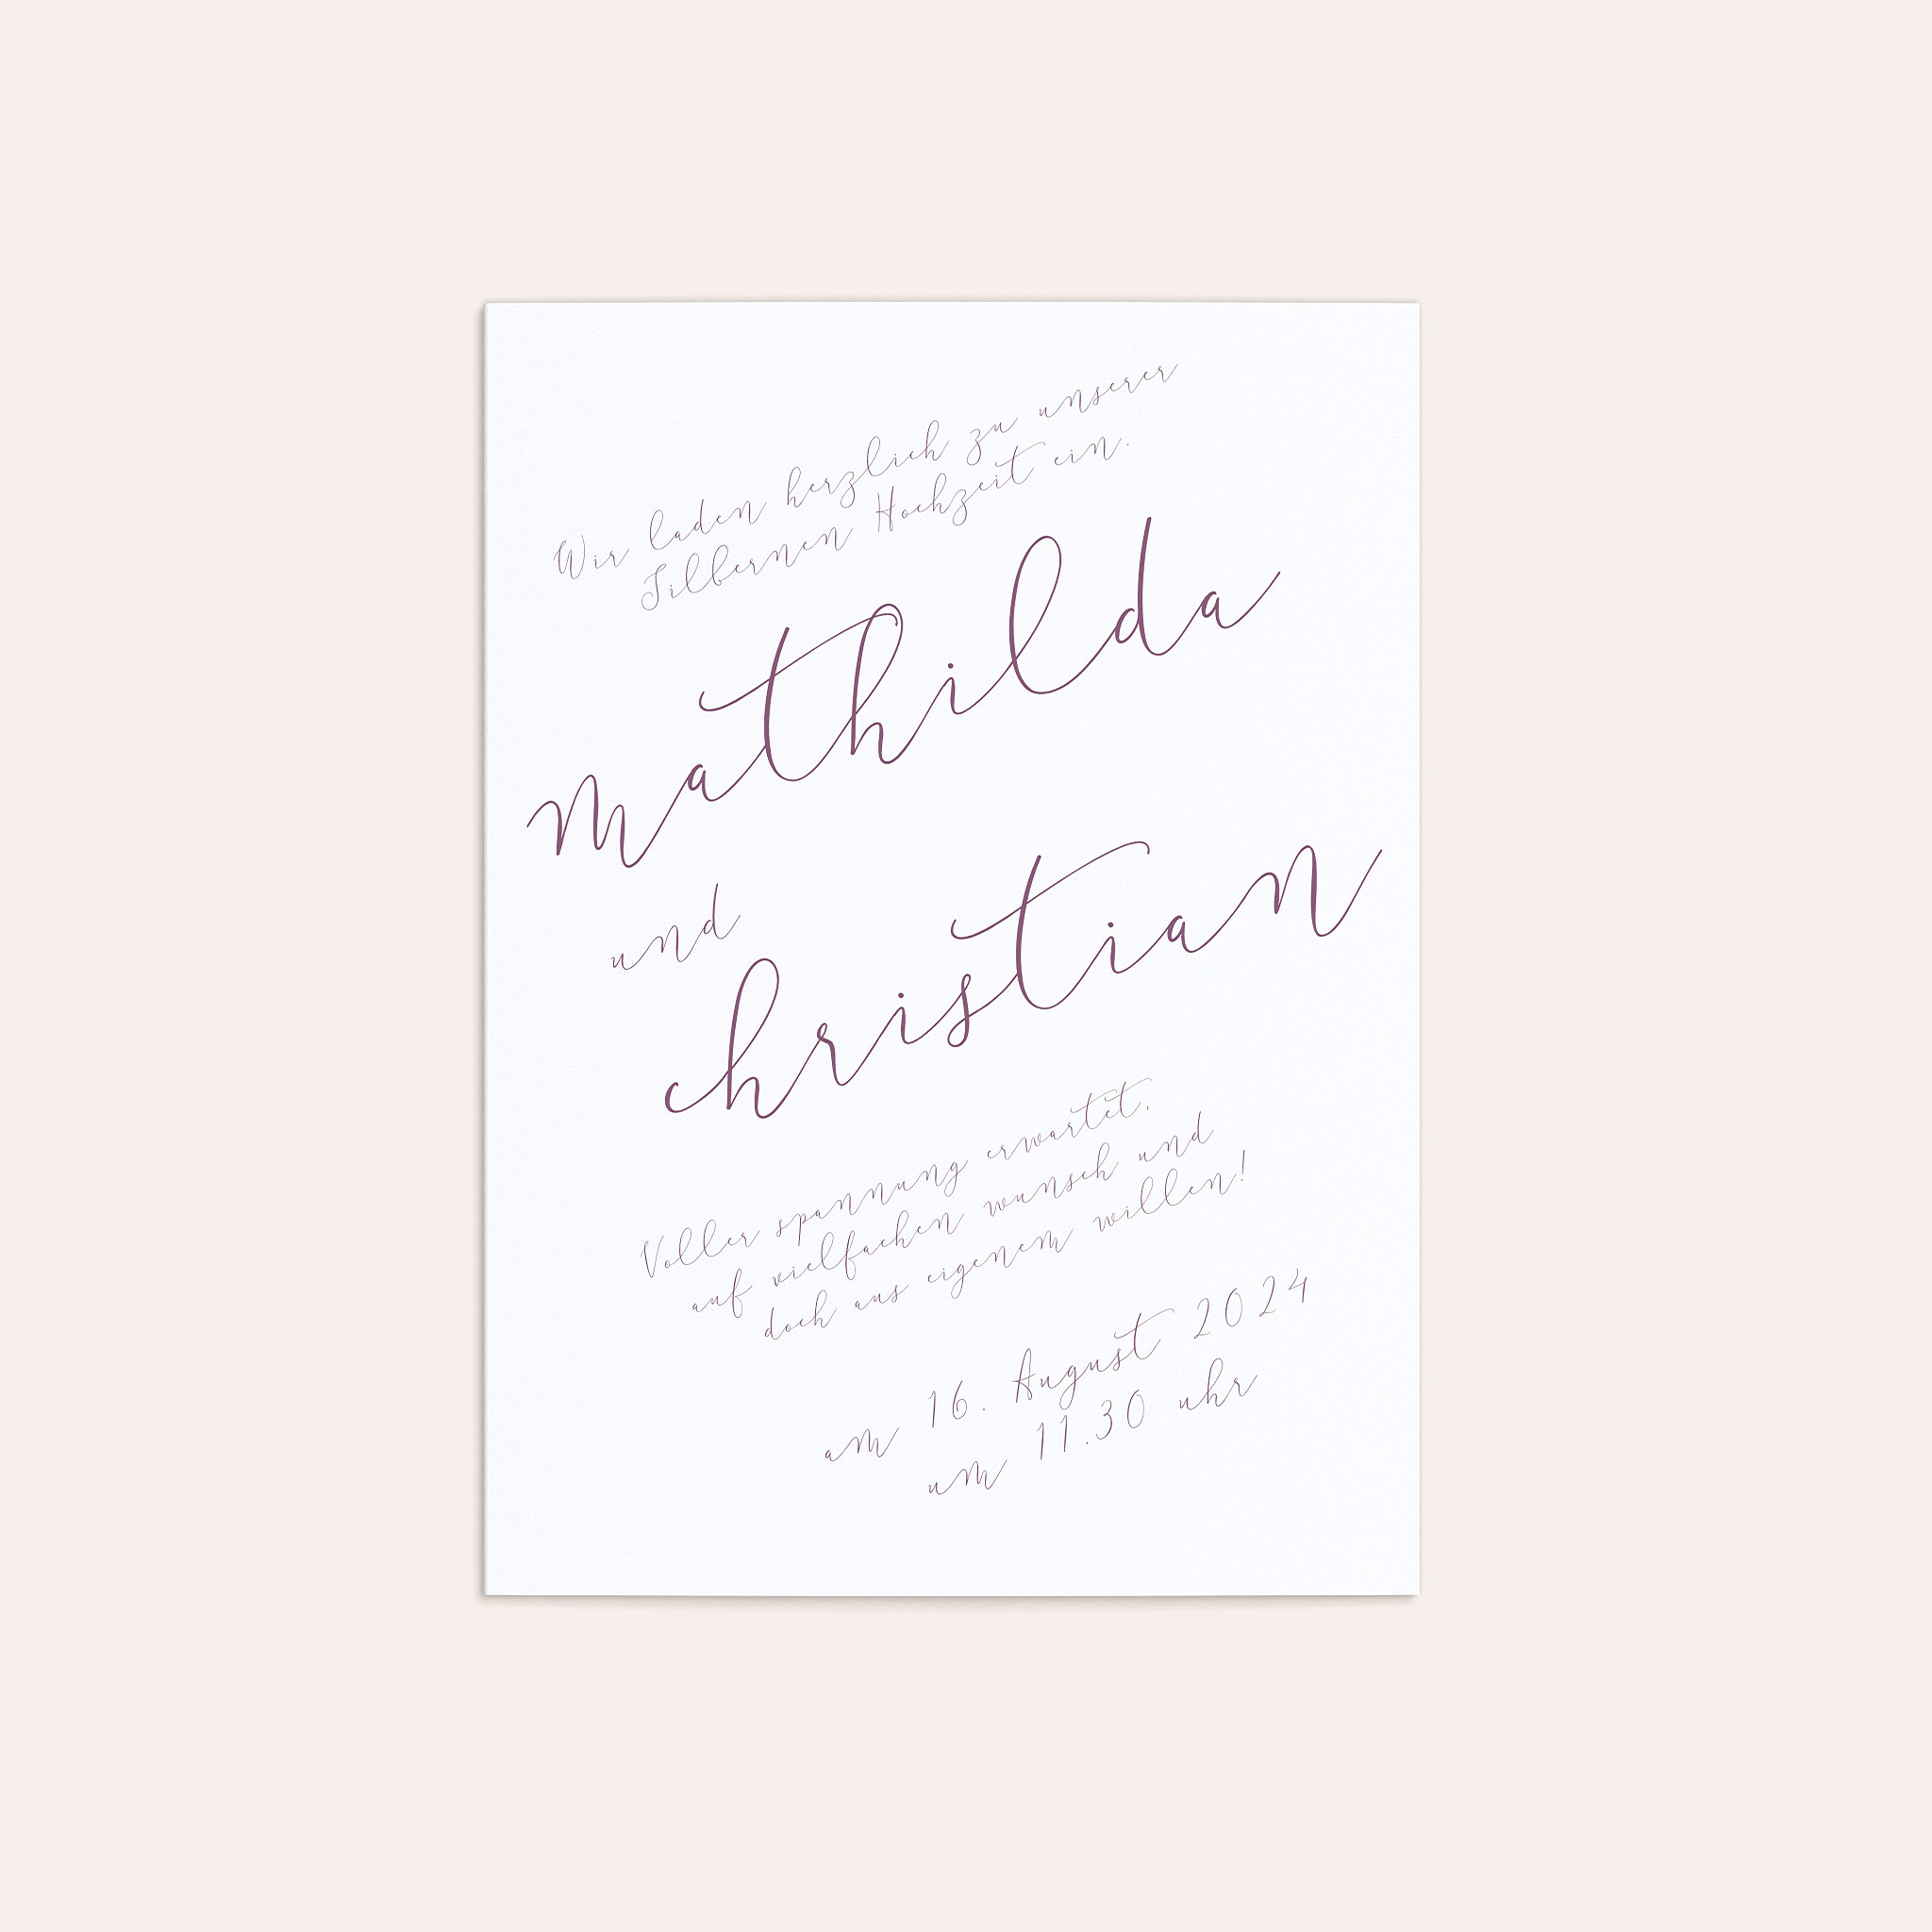 Wir laden herzlich zu unserer
Silbernen Hochzeit ein.
mathilda
und
christian
Voller spannung erwartet,
auf vielfachen wunsch und
doch aus eigenem willen!
am 16. August 2024
um 11.30 uhr